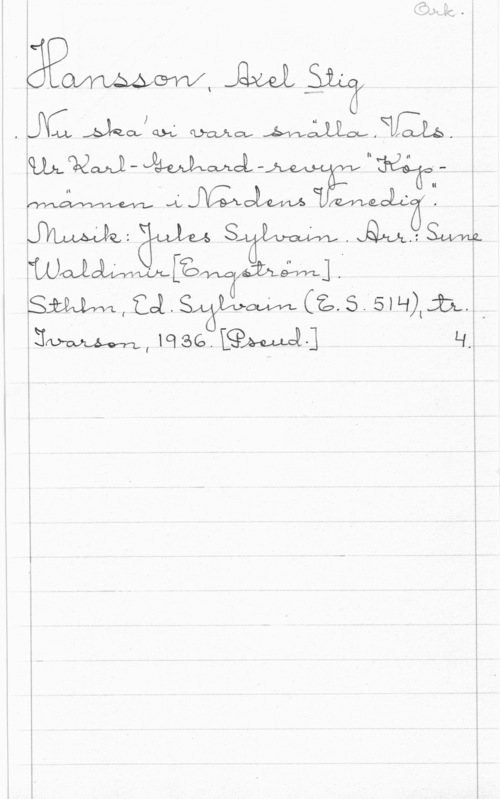 Ork.
Hansson, Axel Stig
Nu ska' vi vara snälla. Vals.
Ur Karl-Gerhard-revyn "Köp-
männen i Nordens Venedig".
Musik: Jules Sylvain. Arr.: Sune
Waldimir [Engström].
Sthlm, Ed. Sylvain (E.S. 514), tr.
Ivarson, 1936. [Pseud.] 4.